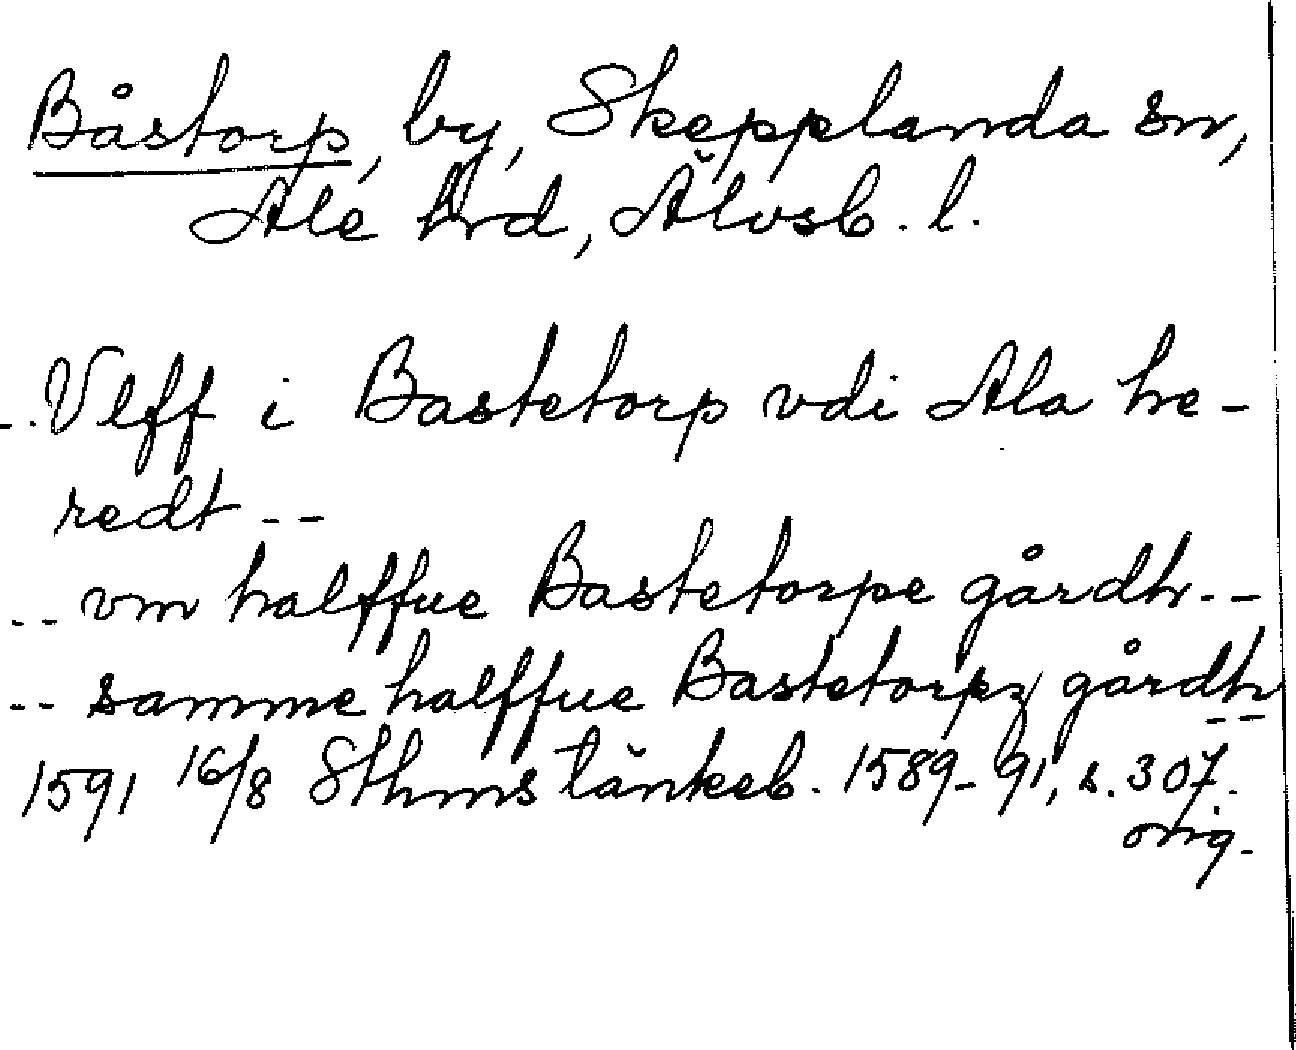 Båstorp, by, Skepplanda sn,
Ale hrd, Älvsb. l.
-. Vlff i Bastetorp vdi Ala he-
redt --
-- vm halffue Bastetorpe gårdh --
-- samme halffue Bastetorpz gårdh --
1591 16/8 Sthms tänkeb. 1589-91, s. 307.
orig.